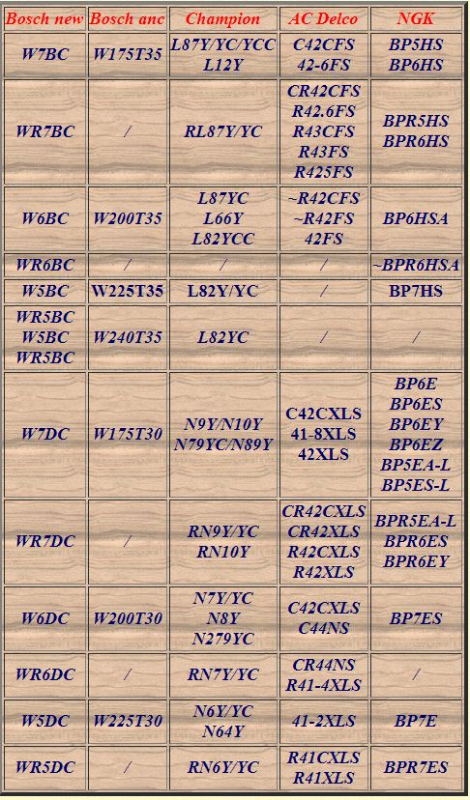 Bosch new Bosch anc Champion AC Delco NGK
W7BC W175T35 L87Y/YC/YCC C42CFS BP5HS
L12Y 42-6FS BP6HS
WR7BC / RL87Y/YC CR42CFS BPR5HS
R42.6FS BPR6HS
R43CFS
R43FS
R425FS
W6BC W200T35 L87YC ~R42CFS BP6HSA
L66Y ~R42FS
L82YCC 42FS
WR6BC / / / ~BPR6HSA
W5BC W225T35 L82Y/YC / BP7HS
WR5BC W240T35 L82YC / /
W5BC
WR5BC
W7DC W175T30 N9Y/N10Y C42CXLS BP6E
N79YC/N89Y 41-8XLS BP6ES
42XLS BP6EY
BP6EZ
BP5EA-L
BP5ES-L
WR7DC / RN9Y/YC CR42CXLS BPR5EA-L
RN10Y CR42XLS BPR6ES
R42CXLS BPR6EY
R42XLS
W6DC W200T30 N7Y/YC C42CXLS BP7ES
N8Y C44NS
N279YC
WR6DC / RN7Y/YC CR44NS /
R41-4XLS
W5DC W225T30 N6Y/YC 41-2XLS BP7E
N64Y
WR5DC / RN6Y/YC R41CXLS BPR7ES
R41XLS